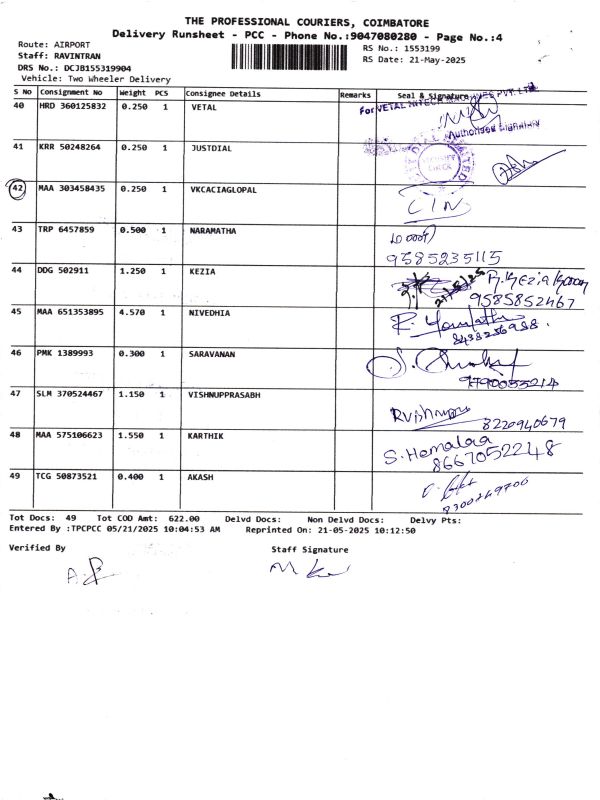 THE PROFESSIONAL COURIERS, COIMBATORE
Delivery Runsheet - PCC - Phone No.:9047080280 - Page No.:4
Route: AIRPORT
Staff: RAVINTRAN
DRS No.: DCJB155319904
Vehicle: Two Wheeler Delivery
RS No.: 1553199
RS Date: 21-May-2025
S No Consignment No Weight PCS Consignee Details Remarks Seal & Signature
40 HRD 360125832 0.250 1 VETAL
For VETAL HITECH MACHINES PVT. LTD
Authorised Signatory
41 KRR 50248264 0.250 1 JUSTDIAL
42 MAA 303458435 0.250 1 VKCACIAGLOPAL
43 TRP 6457859 0.500 1 NARAMATHA
9585235115
44 DDG 502911 1.250 1 KEZIA
21/5/25
9585852467
45 MAA 651353895 4.570 1 NIVEDHIA
8438256988.
46 PMK 1389993 0.300 1 SARAVANAN
9790055214
47 SLM 370524467 1.150 1 VISHNUPPRASABH
8220940679
48 MAA 575106623 1.550 1 KARTHIK
S. Hemalaa
8667052248
49 TCG 50873521 0.400 1 AKASH
Tot Docs: 49 Tot COD Amt: 622.00 Delvd Docs: Non Delvd Docs: Delvy Pts:
Entered By :TPCPCC 05/21/2025 10:04:53 AM Reprinted On: 21-05-2025 10:12:50
Verified By Staff Signature